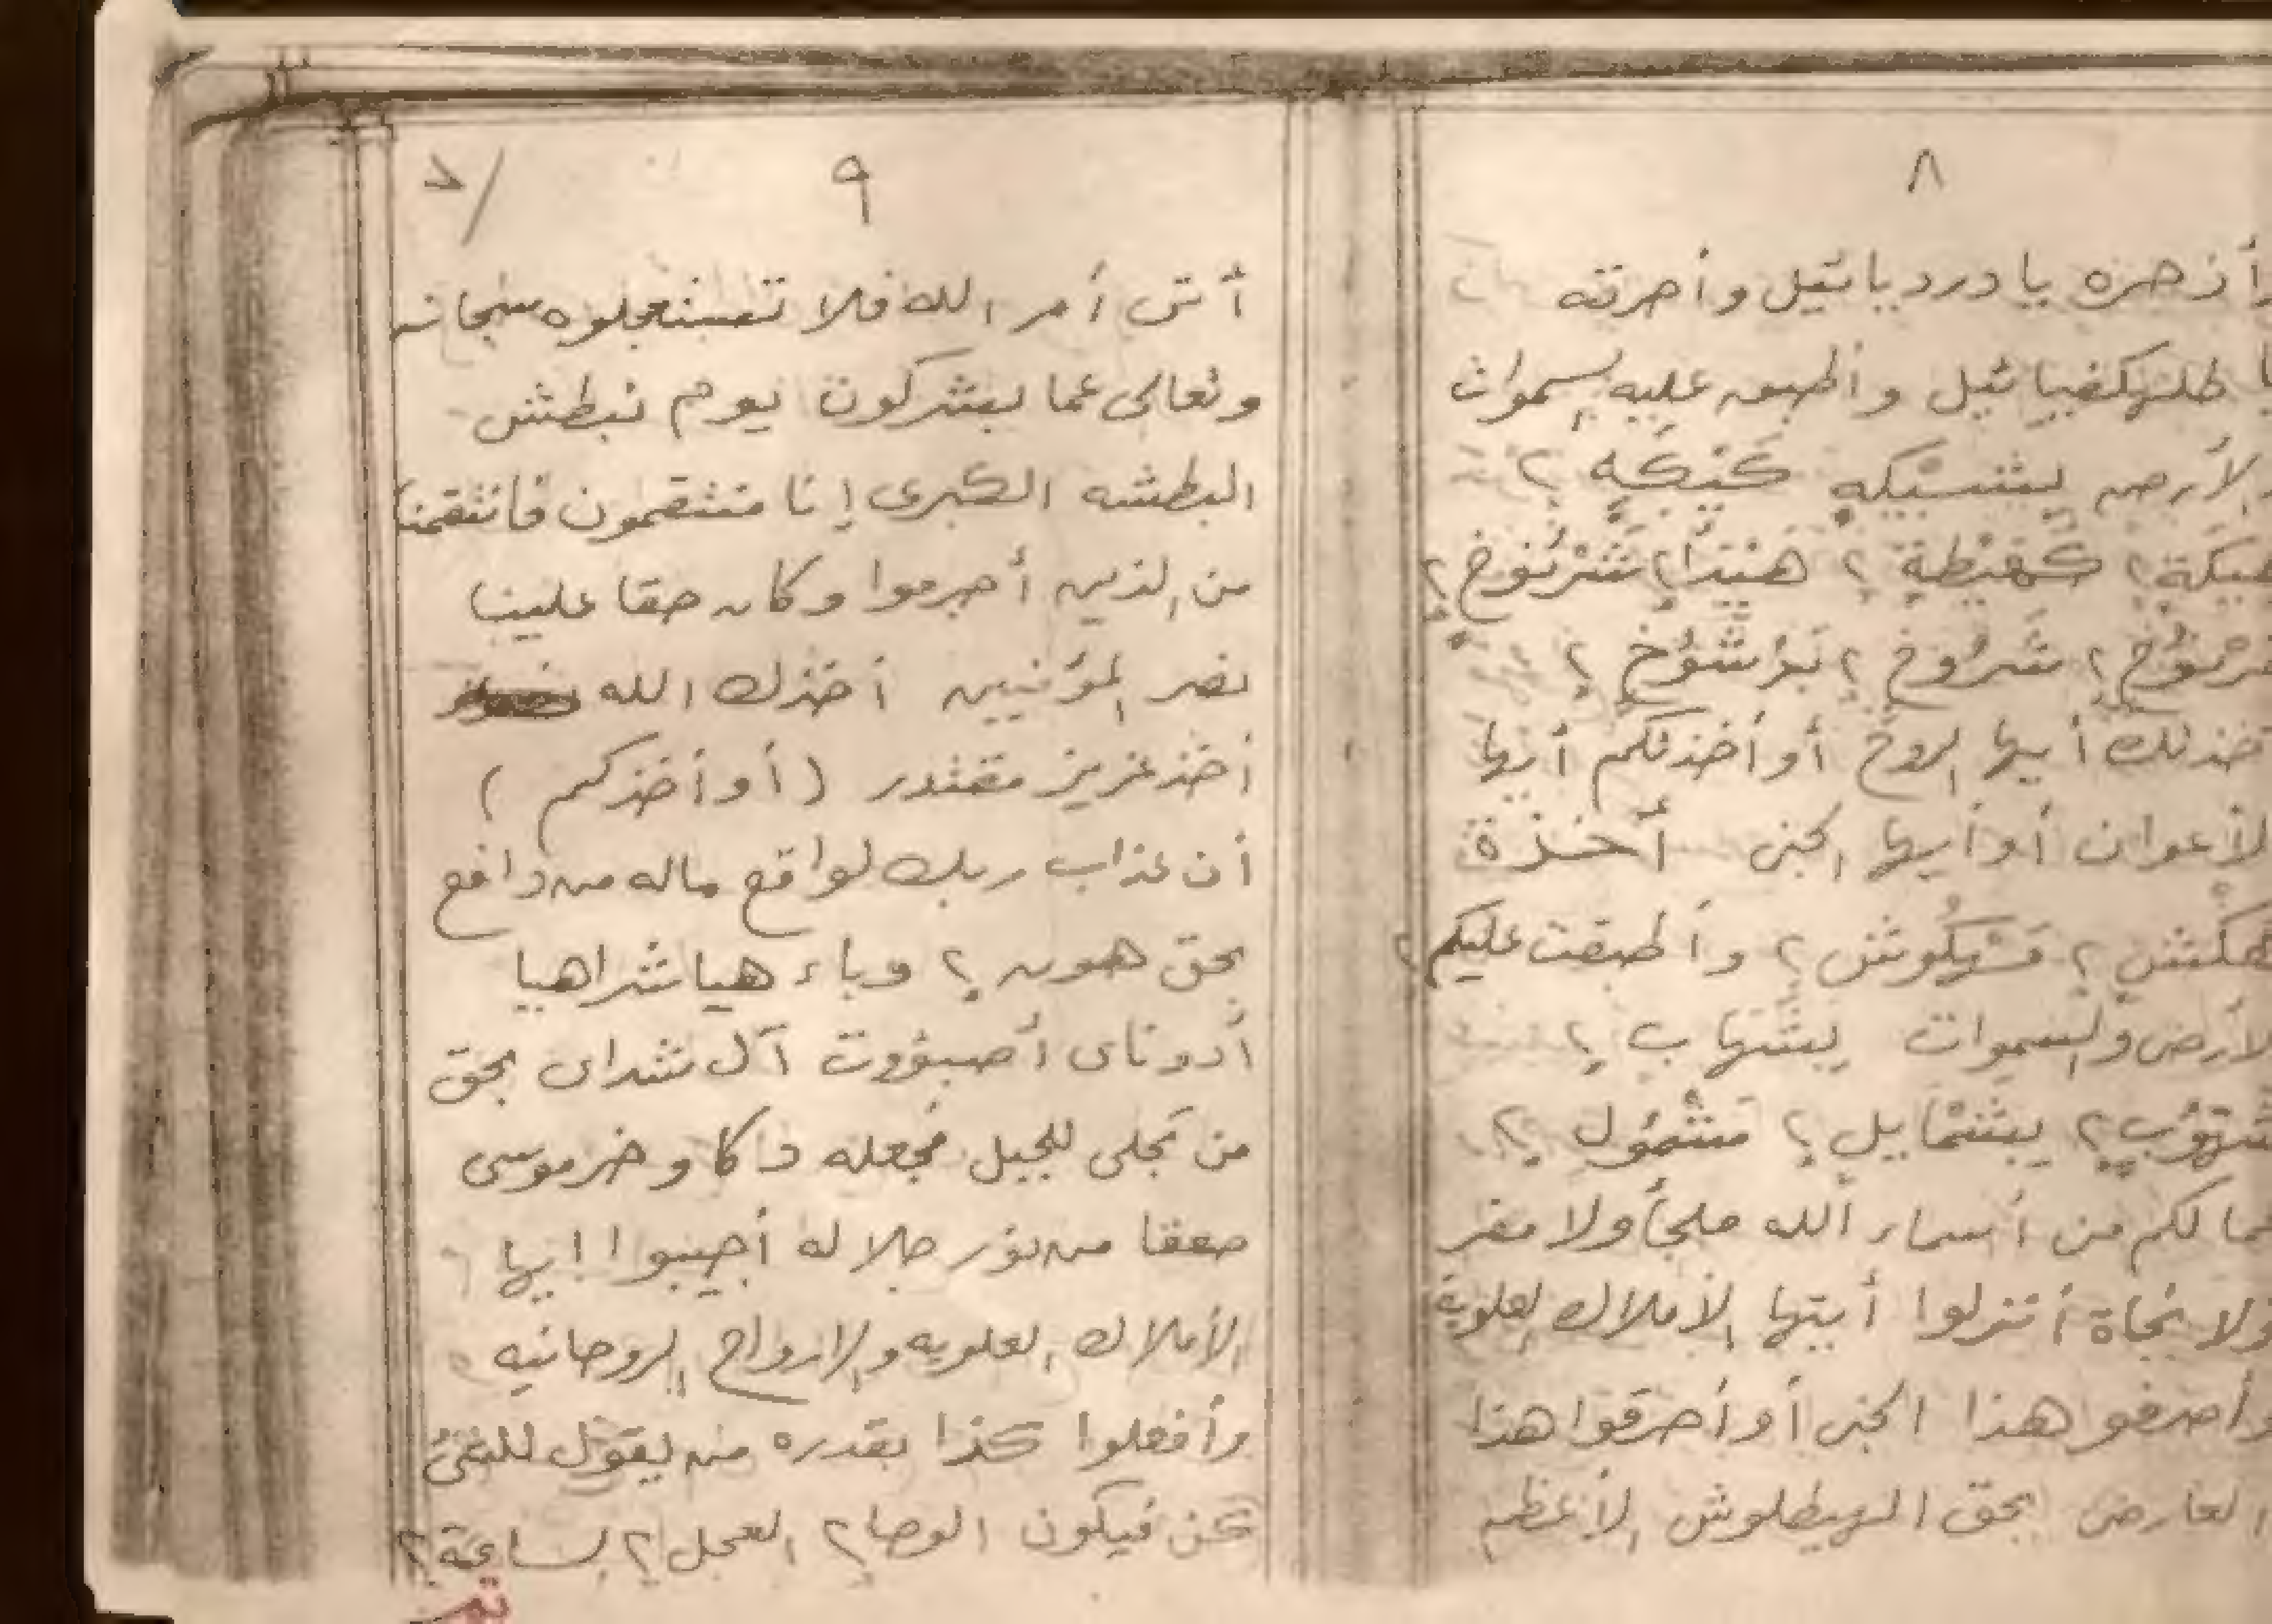 ٨
أزجره يا دردبائيل وأحرقه
طلهكفيائيل وأطبق عليه بسموات
الأرض بشبيكه كنيكه ٢
هبيكة ٢ كهيطة ٢ هنيدا ٢ شرنوخ ٢
شروخ ٢ برشوخ ٢
أخذتك أيها الروح أو أخذتكم أيها
الأعوان أو أيها الجنى أخذة
هكش ٢ مهكوش ٢ وأطبقت عليكم
الأرض والسموات بشهاب ٢
شهوب ٢ بشمايل ٢ مشمول ٢
فما لكم من أسماء الله ملجأ ولا مفر
ولا نجاة أنزلوا أيتها الأملاك العلوية
وأصرفوا هذا الجنى أو أحرقوا هذا
العارض بحق الهيطلوش الأعظم
٩
أتى أمر الله فلا تستعجلوه سبحانه
وتعالى عما يشركون يوم نبطش
البطشه الكبرى إنا منتقمون فانتقمنا
من الذين أجرموا وكان حقا علينا
نصر المؤمنين أخذك الله
أخذ عزيز مقتدر ( أو أخذكم )
أن عذاب ربك لواقع ماله من دافع
بحق هورن ٢ وباء هيا شراهيا
أدوناى أصبؤوت آل شداى بحق
من تجلى للجبل فجعله دكا وخر موسى
صعقا من نور جلاله أجيبوا ايها
الأملاك العلويه والارواح الروحانيه
وأفعلوا كذا بقدره من يقول للشئ
كن فيكون الوحا ٢ العجل ٢ الساعة ٢